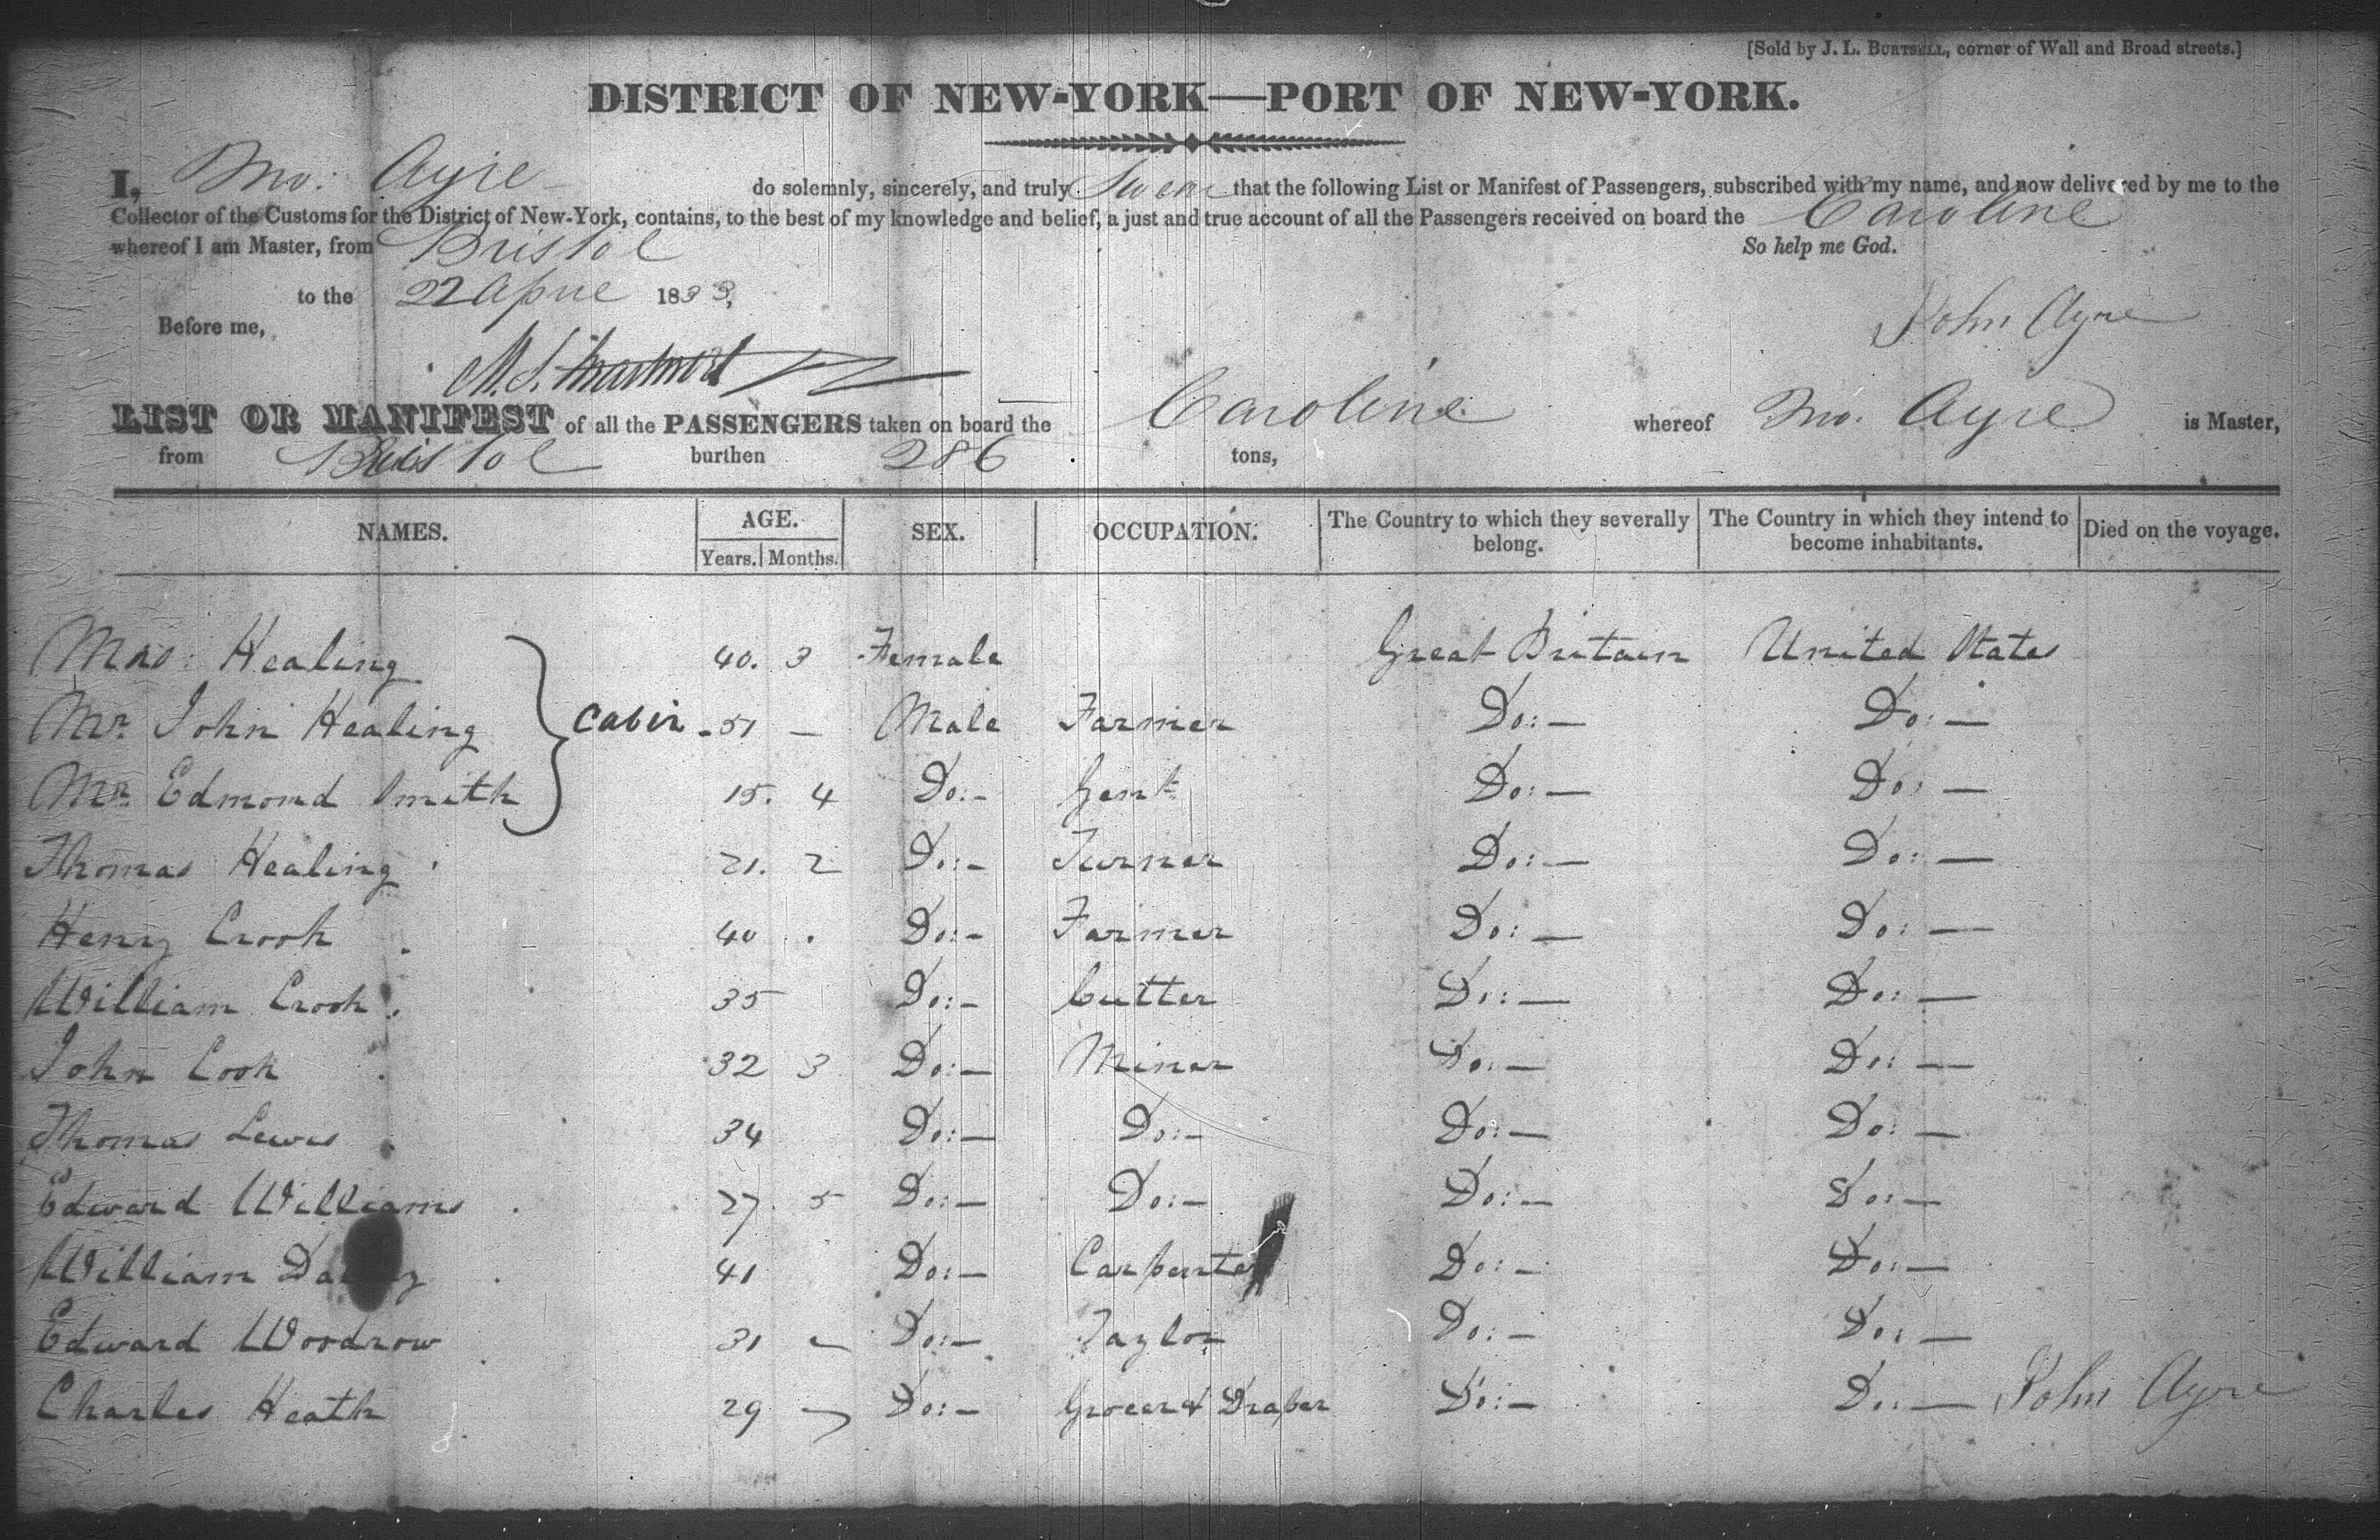 [Sold by J. L. BURTSELL, corner of Wall and Broad streets.]
DISTRICT OF NEW-YORK—PORT OF NEW-YORK.
I, Jno: Ayre do solemnly, sincerely, and truly Swear that the following List or Manifest of Passengers, subscribed with my name, and now delivered by me to the
Collector of the Customs for the District of New-York, contains, to the best of my knowledge and belief, a just and true account of all the Passengers received on board the Caroline
whereof I am Master, from Bristol So help me God.
to the 22 April 1833,
John Ayre
Before me,
LIST OR MANIFEST of all the PASSENGERS taken on board the Caroline whereof Jno. Ayre is Master,
from Bristol burthen 286 tons,
NAMES. AGE. SEX. OCCUPATION. The Country to which they severally belong. The Country in which they intend to become inhabitants. Died on the voyage.
Years. Months.
Mrs: Healing 40. 3 Female Great Britain United States
Mr. John Healing Cabin 51 — Male Farmer Do:— Do:—
Mr. Edmond Smith 15. 4 Do:- Gent Do:— Do: —
Thomas Healing 21. 2 Do:- Turner Do:— Do: —
Henry Crook 40 Do:- Farmer Do: — Do: —
William Crook 35 Do:- Cutter Do: — Do: —
John Cook 32 3 Do:— Miner Do: — Do: —
Thomas Lewis 34 Do:— Do:— Do:— Do: —
Edward Williams 27. 5 Do:— Do:— Do:— Do:—
William 41 Do:— Carpenter Do:— Do:—
Edward Woodrow 31 – Do:— Taylor Do:— Do: —
Charles Heath 29 – Do:— Grocer & Draper Do:— Do: — John Ayre